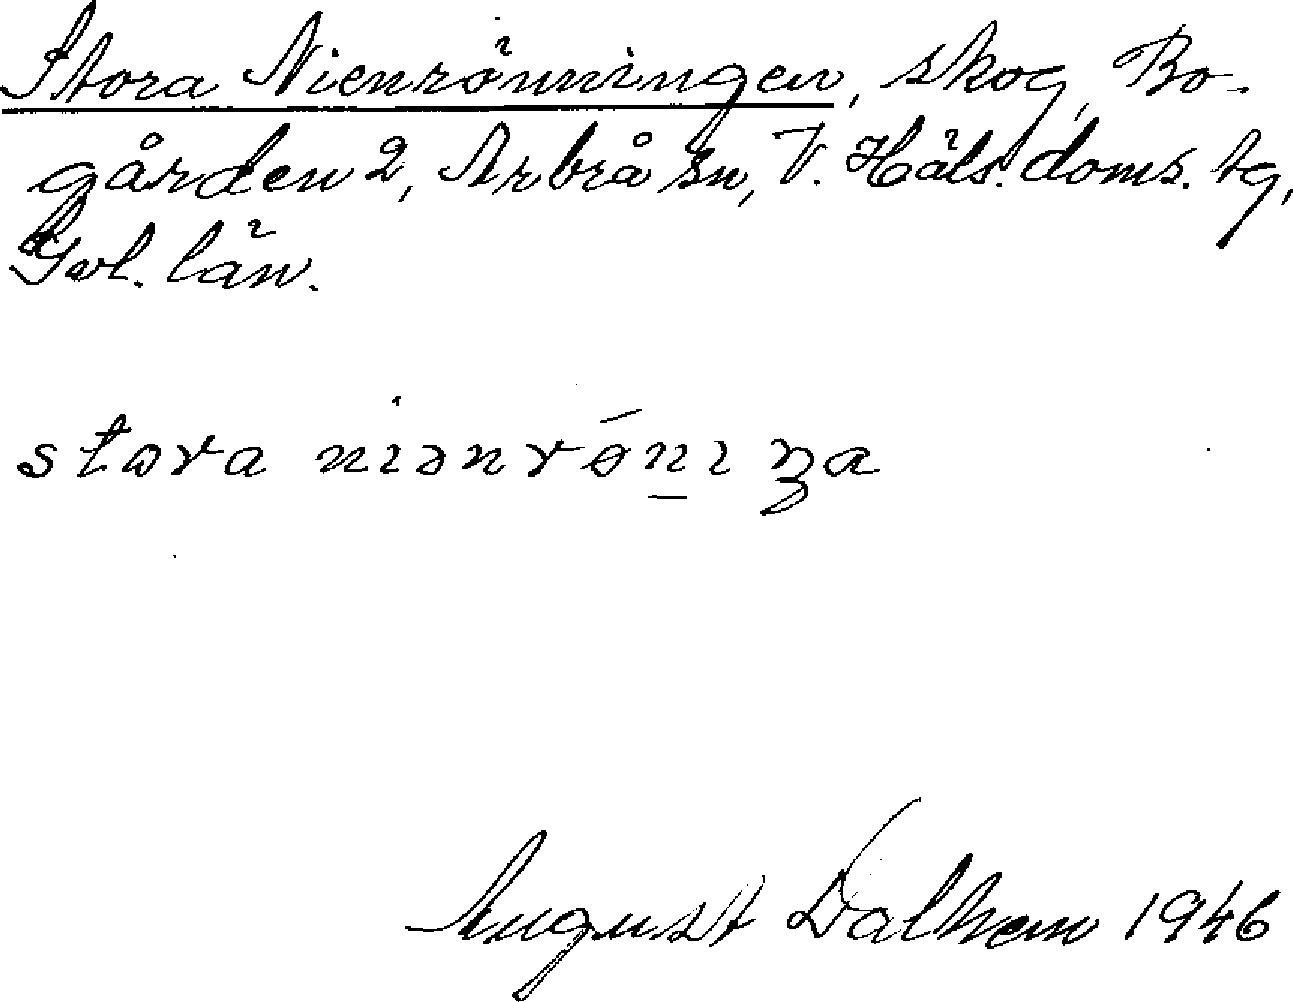 Stora Nienrönningen, skog, Bo-
gården 2, Arbrå sn, V. Häls. doms. tg,
Gvl. län.
stɷra niənrǿn̲iŋa
August Dalhem 1946